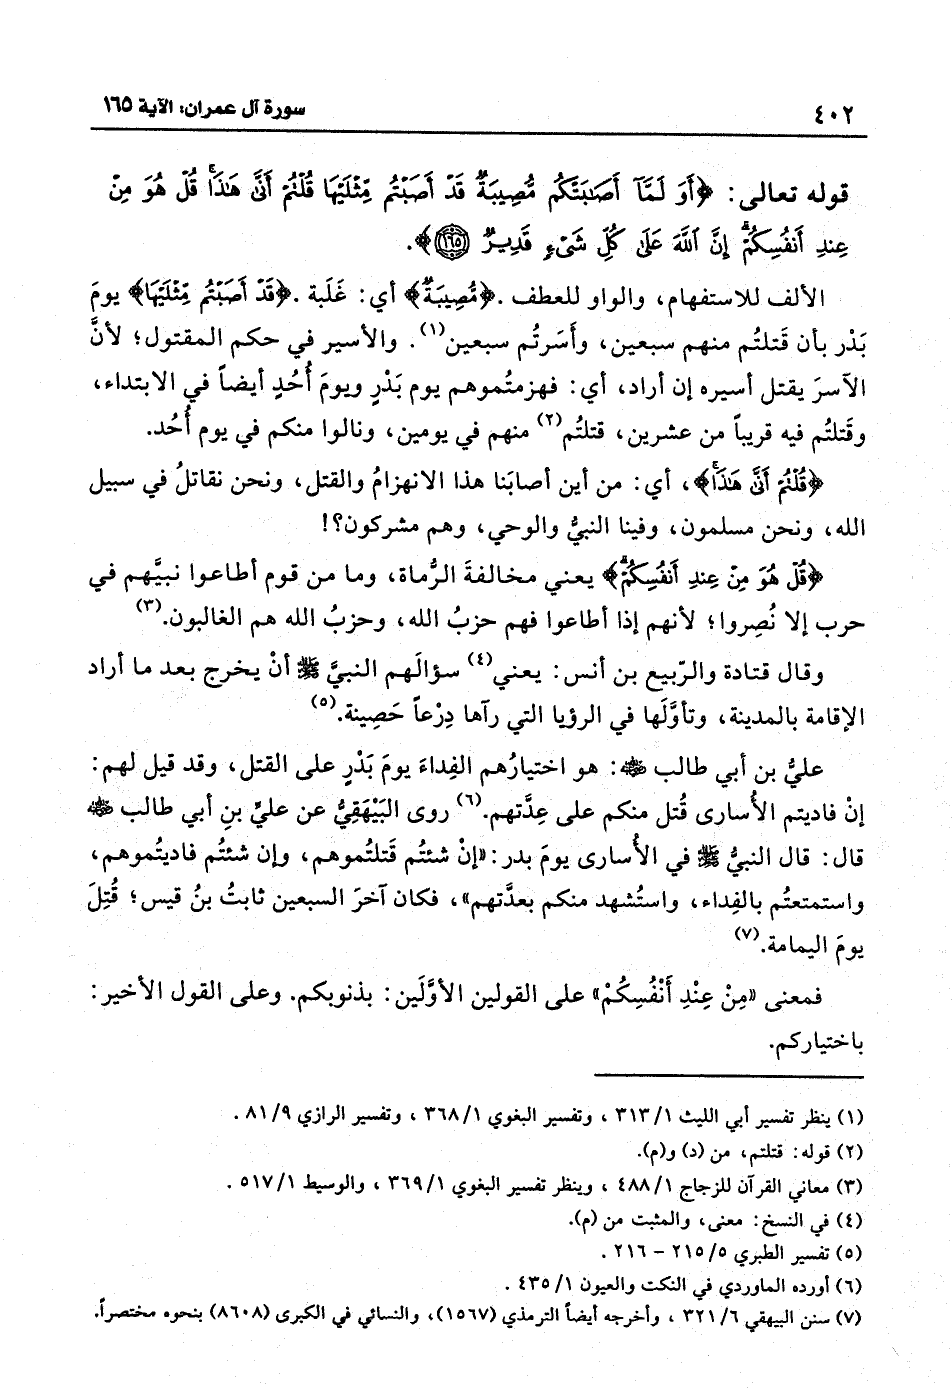 ٤٠٢ سورة آل عمران: الآية ١٦٥
قوله تعالى: ﴿أَوَ لَمَّآ أَصَـٰبَتْكُم مُّصِيبَةٌ قَدْ أَصَبْتُم مِّثْلَيْهَا قُلْتُمْ أَنَّىٰ هَـٰذَاۖ قُلْ هُوَ مِنْ
عِندِ أَنفُسِكُمْۗ إِنَّ ٱللَّهَ عَلَىٰ كُلِّ شَىْءٍ قَدِيرٌ ١٦٥﴾.
الألف للاستفهام، والواو للعطف. ﴿مُّصِيبَةٌ﴾ أي: غَلَبة. ﴿قَدْ أَصَبْتُم مِّثْلَيْهَا﴾ يومَ
بَدْر بأن قَتلتُم منهم سبعين، وأَسَرتُم سبعين(١). والأسير في حكم المقتول؛ لأنَّ
الآسرَ يقتل أسيره إن أراد، أي: فهزمتُموهم يوم بَدْرٍ ويومَ أُحُدٍ أيضاً في الابتداء،
وقَتلتُم فيه قريباً من عشرين، قتلتُم(٢) منهم في يومين، ونالوا منكم في يوم أُحُد.
﴿قُلْتُمْ أَنَّىٰ هَـٰذَاۖ﴾، أي: من أين أصابَنا هذا الانهزامُ والقتل، ونحن نقاتلُ في سبيل
الله، ونحن مسلمون، وفينا النبيُّ والوحي، وهم مشركون؟!
﴿قُلْ هُوَ مِنْ عِندِ أَنفُسِكُمْۗ﴾ يعني مخالفةَ الرُّماة، وما من قوم أطاعوا نبيَّهم في
حرب إلا نُصِروا؛ لأنهم إذا أطاعوا فهم حزبُ الله، وحزبُ الله هم الغالبون.(٣)
وقال قتادة والرّبيع بن أنس: يعني(٤) سؤالَهم النبيَّ ﷺ أنْ يخرج بعد ما أراد
الإقامة بالمدينة، وتأوَّلَها في الرؤيا التي رآها دِرْعاً حَصِينة.(٥)
عليُّ بن أبي طالب ﵁: هو اختيارُهم الفِداءَ يومَ بَدْرٍ على القتل، وقد قيل لهم:
إنْ فاديتم الأُسارى قُتل منكم على عِدَّتهم.(٦) روى البَيْهَقِيُّ عن عليِّ بنِ أبي طالب ﵁
قال: قال النبيُّ ﷺ في الأُسارى يومَ بدر: «إنْ شئتُم قَتلتُموهم، وإن شئتُم فاديتُموهم،
واستمتعتُم بالفِداء، واستُشهد منكم بعدَّتهم»، فكان آخرَ السبعين ثابتُ بنُ قيس؛ قُتِلَ
يومَ اليمامة.(٧)
فمعنى «مِنْ عِنْدِ أَنْفُسِكُمْ» على القولين الأوَّلَين: بذنوبكم. وعلى القول الأخير:
باختياركم.
(١) ينظر تفسير أبي الليث ٣١٣/١ ، وتفسير البغوي ٣٦٨/١ ، وتفسير الرازي ٨١/٩ .
(٢) قوله: قتلتم، من (د) و(م).
(٣) معاني القرآن للزجاج ٤٨٨/١ ، وينظر تفسير البغوي ٣٦٩/١ ، والوسيط ٥١٧/١ .
(٤) في النسخ: معنى، والمثبت من (م).
(٥) تفسير الطبري ٢١٥/٥ - ٢١٦ .
(٦) أورده الماوردي في النكت والعيون ٤٣٥/١ .
(٧) سنن البيهقي ٣٢١/٦ ، وأخرجه أيضاً الترمذي (١٥٦٧)، والنسائي في الكبرى (٨٦٠٨) بنحوه مختصراً.